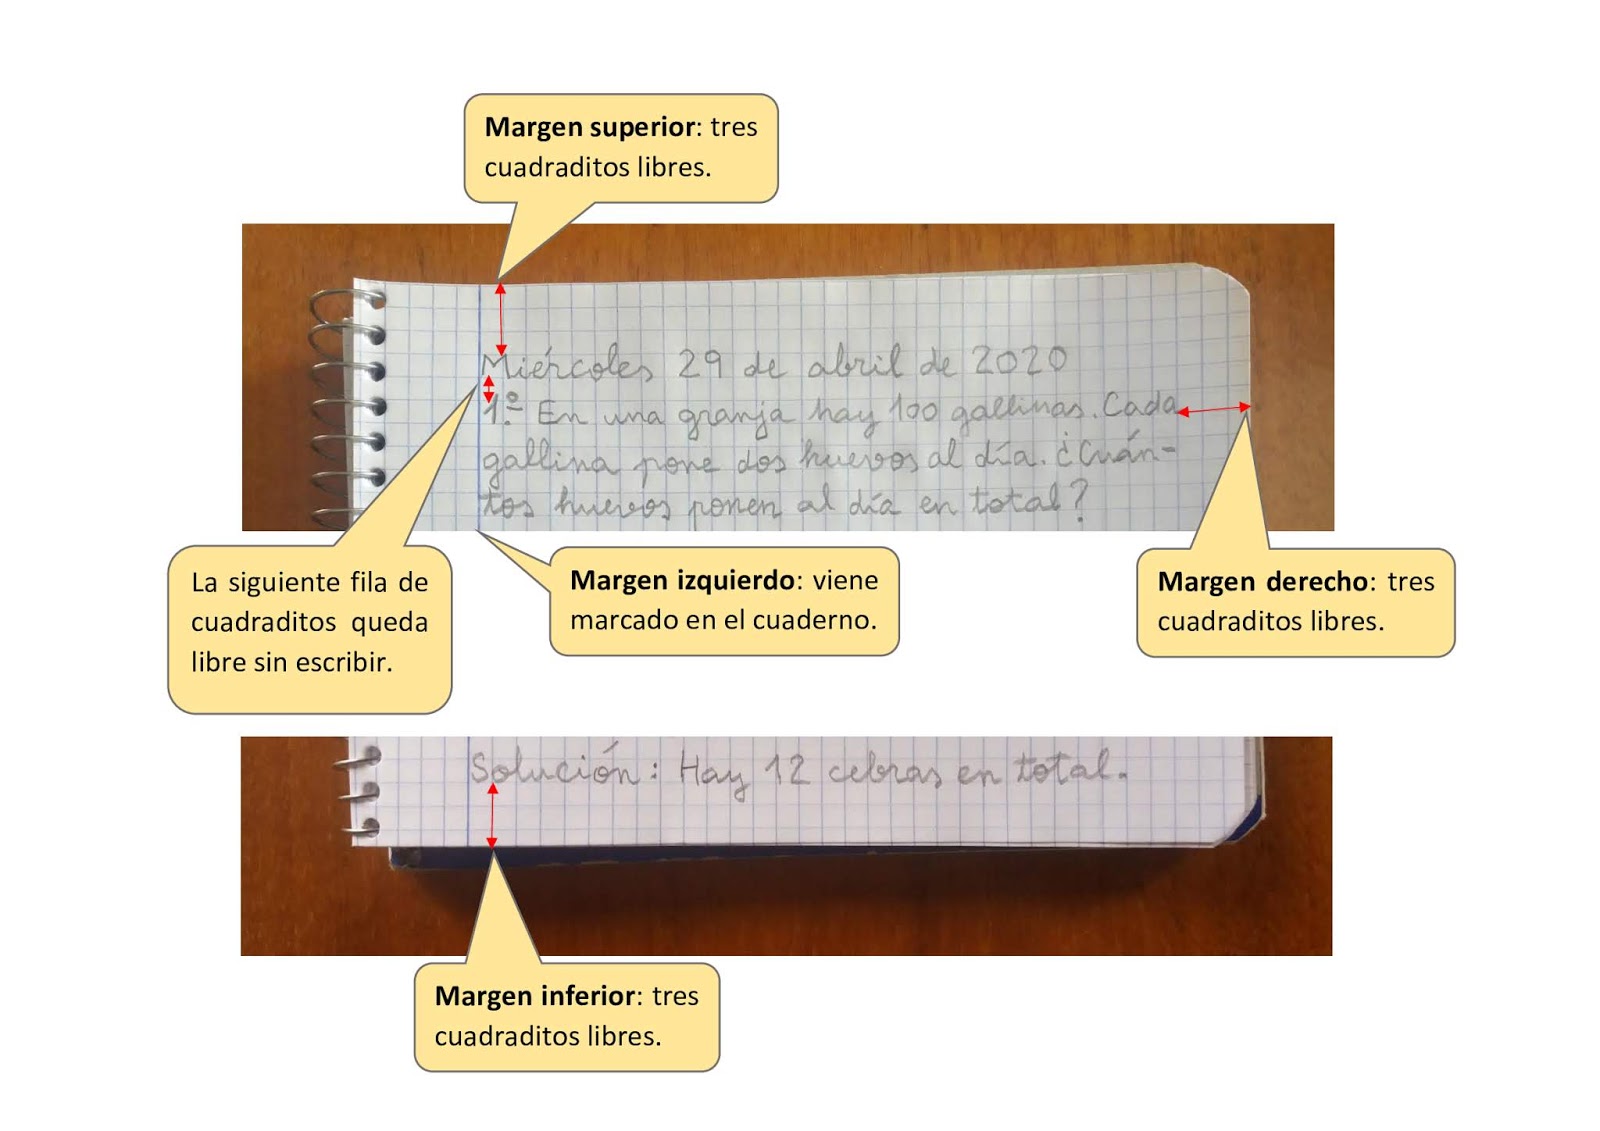 Margen superior: tres
cuadraditos libres.
Miércoles 29 de abril de 2020
1º En una granja hay 100 gallinas. Cada
gallina pone dos huevos al día. ¿Cuán-
tos huevos ponen al día en total?
La siguiente fila de
cuadraditos queda
libre sin escribir.
Margen izquierdo: viene
marcado en el cuaderno.
Margen derecho: tres
cuadraditos libres.
Solución: Hay 12 cebras en total.
Margen inferior: tres
cuadraditos libres.